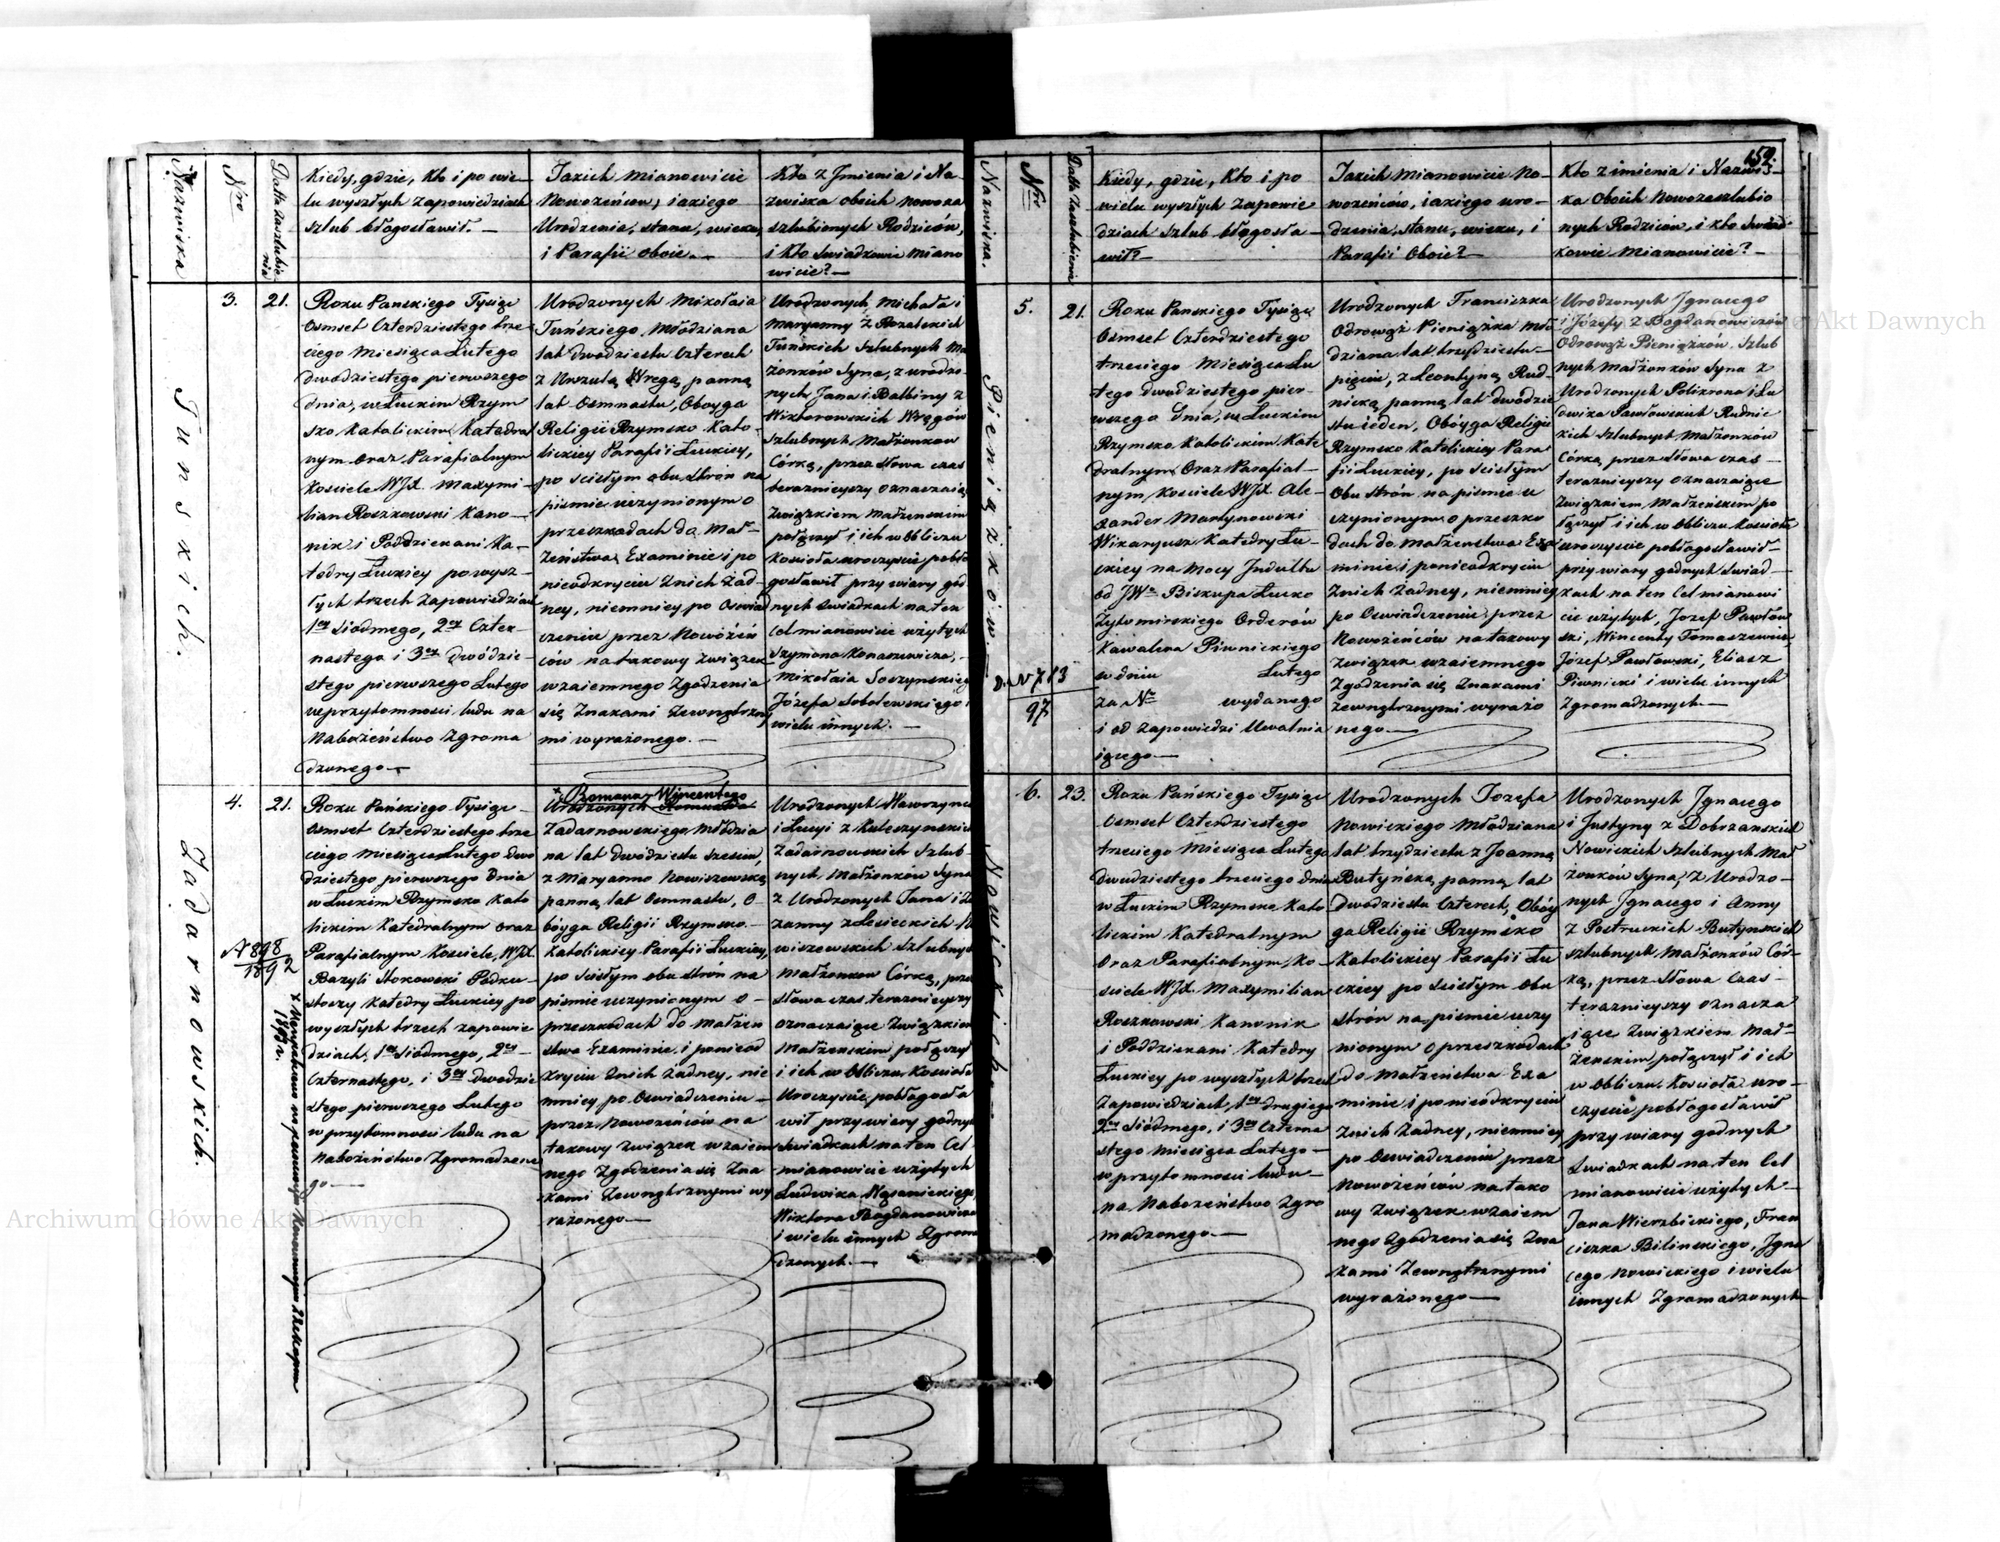 Nazwiska
Nro
Datta zaszlubienia
Kiedy, gdzie, Kto i po wie-
lu wyszłych zapowiedziach
szlub błogosławił. —
Jakich mianowicie
Nowożeńców, iakiego
Urodzenia, stanu, wieku,
i Parafii oboie. —
Kto z Jmienia i Na-
zwiska obóich Nowoza
szlubionych Rodziców,
i kto świadkowie miano
wicie? —
Tunskich.
3.
21.
Roku Panskiego Tysiąc
osmset Czterdziestego trze
ciego Miesiąca Lutego
dwodziestego pierwszego
dnia, w Łuckim Rzym
sko Katolickim, Katedral
nym oraz Parafialnym
Kościele WJX. Maxymi-
lian Roszkowski Kano-
nik i Poddziekani Ka-
tedry Łuckiey po wysz-
łych trzech zapowiedziach
1er Siódmego, 2er Czter-
nastego i 3er dwódzie-
stego pierwszego Lutego
w przytomności ludu na
Nabożeństwo Zgroma
dzonego —
Urodzonych Mikołaia
Tuńskiego, Młodziana
lat dwodziestu Czterech
z Urszulą Wręgą, panną
lat Osmnastu, Oboyga
Religii Rzymsko Kato-
lickiey Parafii Łuckiey,
po ścisłym obu stron na
piśmie uczynionym o
przeszkodach do Mał-
żeństwa, Examinie i po
nieodkryciu Znich żad-
ney, niemniey po Oswiad
czeniu przez Nowożeń
ców na takowy Związek
wzaiemnego Zgodzenia
się Znakami Zewnętrzny
mi wyrażonego. —
Urodzonych Michała i
Maryanny z Rozalskich
Tuńskich szlubnych Mał
żonków Syna, z urodzo-
nych Jana i Balbiny z
Wiktorowskich Wręgów
szlubnych Małżonkow
Córką, przez słowa czas
teraznieyszy oznaczaiące
Związkiem Małżenskim
połączył i ich w obliczu
Kościoła uroczyście pobło
gosławił przy wiary god
nych świadkach na ten
cel mianowicie użytych
Szymona Konaszewicza,
Mikołaia Soczynskiego
Józefa Sobolewskiego i
wielu innych. —
Zadarnowskich.
4.
21.
N 898
1892
Roku Pańskiego Tysiąc-
osmset Czterdziestego trze
ciego Miesiąca Lutego dwo
dziestego pierwszego Dnia
w Łuckim Rzymsko Kato
lickim Katedralnym oraz
Parafialnym Kościele, WJX.
Bazyli Stokowski Podku-
stoszy Katedry Łuckiey po
wyszłych trzech zapowie
dziach, 1er Siódmego, 2er-
Czternastego, i 3er dwodzie
stego pierwszego Lutego
w przytomności ludu na
Nabożeństwo Zgromadzone
go —
x Romana-Wincentego
Urodzonych Romualda
Zadarnowskiego Młodzia
na lat Dwodziestu sześciu,
z Maryanno Nowiszewską
panną lat Osmnastu, O-
bóyga Religii Rzymsko-
Katolickiey Parafii Łuckiey,
po ścisłym obu stron na
piśmie uczynionym o-
przeszkodach do małżen
stwa Examinie, i ponieod
kryciu Znich żadney, nie
mniey po Oświadczeniu-
przez Nowożeńców na
takowy Związek wzaiem
nego Zgodzenia się Zna
kami Zewnętrznymi wy
rażonego —
Urodzonych Wawrzyńca
i Łucyi z Kuleszynskich
Zadarnowskich szlub-
nych Małżonków Syna
z Urodzonych Jana i
zanny z Lesieckich
wiszewskich szlubnych
Małżonkow Córką, przez
słowa czas teraznieyszy
oznaczaiące Związkiem
Małżenskim połączył
i ich w Obliczu Kościoła
Uroczyście pobłogosła
wił przy wiary godnych
swiadkach na ten Cel
mianowicie użytych
Ludwika
Wiktora Bogdanowicza
i wielu innych Zgroma
dzonych. —
159.
Nazwiska.
Nro
Datta zaszlubienia
Kiedy, gdzie, Kto i po
wielu wyszłych zapowie
dziach szlub błogosła-
wił? —
Jakich mianowicie No-
wożeńców, iakiego uro-
dzenia, stanu, wieku, i
Parafii Oboie? —
Kto z imienia i Nazwis-
ka Obóich Nowozaszlubio
nych Rodziców, i kto świad
kowie mianowicie? —
Pieniążków.
5.
21.
N 713
97
Roku Pańskiego Tysiąc
Osmset Czterdziestego
trzeciego Miesiąca Lu
tego dwodziestego pier-
wszego dnia, w Łuckim
Rzymsko Katolickim Kate
dralnym Oraz Parafial-
nym, Kościele WJX. Ale-
xander Martynowski
Wikaryusz Katedry Łu-
ckiey na Mocy Jndultu
od JWo Biskupa Łucko
Żytomirskiego Orderów
Kawalera Piwnickiego
w dniu Lutego
za No wydanego
i od Zapowiedzi Uwalnia
iącego —
Urodzonych Franciszka
Odrowąż Pieniążka Mło
dziana lat trzydziestu-
pięciu, z Leontyną Rud-
nicką panną lat dwódzie
stu ieden, Obóyga Religii
Rzymsko Katolickiey Para
fii Łuckiey, po ścisłym
Obu stron na piśmie u
czynionym o przeszko
dach do Małżenstwa Exa
minie i ponieodkryciu
Znich Żadney, niemniey
po Oswiadczeniu przez
Nowożeńców na takowy
Związek wzaiemnego
Zgodzenia się Znakami
Zewnętrznymi wyrażo
nego —
Urodzonych Jgnacego
i Józefy z Bogdanowiczów
Odrowąż Pieniążków szlub
nych Małżonków Syna z
Urodzonych Polikrona i Lu
dwika Pawłowskich Rudnic
kich szlubnych Małżonków
Córką, przez słowa czas-
teraznieyszy oznaczaiące
Związkiem Małżeńskim po
łączył i ich w Obliczu Kościoła
uroczyscie pobłogosławił-
przy wiary godnych swiad-
kach na ten Cel mianowi
cie użytych, Jozef Pawłow
ski, Wincenty Tomaszewicz,
Józef Pawłowski, Eliasz
Piwnicki i wielu innych
Zgromadzonych —
Nowickich.
6.
23.
Roku Pańskiego Tysiąc
Osmset Czterdziestego
trzeciego Miesiąca Lutego
Dwudziestego trzeciego dnia
w Łuckim Rzymsko Kato
lickim Katedralnym
Oraz Parafialnym, Ko-
ściele WJX. Maxymilian
Roszkowski Kanonik
i Poddziekani Katedry
Łuckiey po wyszłych trzech
Zapowiedziach, 1er drugiego
2er Siódmego, i 3er Czterna
stego Miesiąca Lutego-
w przytomności ludu-
na Nabożeństwo Zgro
madzonego —
Urodzonych Jozefa
Nowickiego Młodziana
lat trzydziestu z Joanną
Butyńską panną lat
Dwodziestu Czterech, Obóy
ga Religii Rzymsko
Katolickiey Parafii Łu
ckiey po scisłym Obu
strón na piśmie uczy
nionym o przeszkodach
do Małżeństwa Exa
minie, i ponieodkryciu
Znich Żadney, niemniey
po Oswiadczeniu przez
Nowożeńców na tako
wy Związek wzaiem
nego Zgodzenia się Zna
kami Zewnętrznymi
wyrażonego —
Urodzonych Jgnacego
i Justyny z Dobrzanskich
Nowickich szlubnych Mał
żonków Syna, z Urodzo-
nych Jgnacego i Anny
z Postruckich Butynskich
szlubnych Małżonków Cór-
ką, przez słowa Czas-
teraznieyszy oznacza
iące Związkiem Mał-
żenskim połączył i ich
w Obliczu Kościoła uro-
czyście pobłogosławił
przy wiary godnych
Swiadkach na ten Cel
mianowicie użytych-
Jana Wierzbickiego, Fran
ciszka Bilinskiego, Jgna
cego Nowickiego i wielu
innych Zgromadzonych
Archiwum Główne Akt Dawnych
Archiwum Główne Akt Dawnych